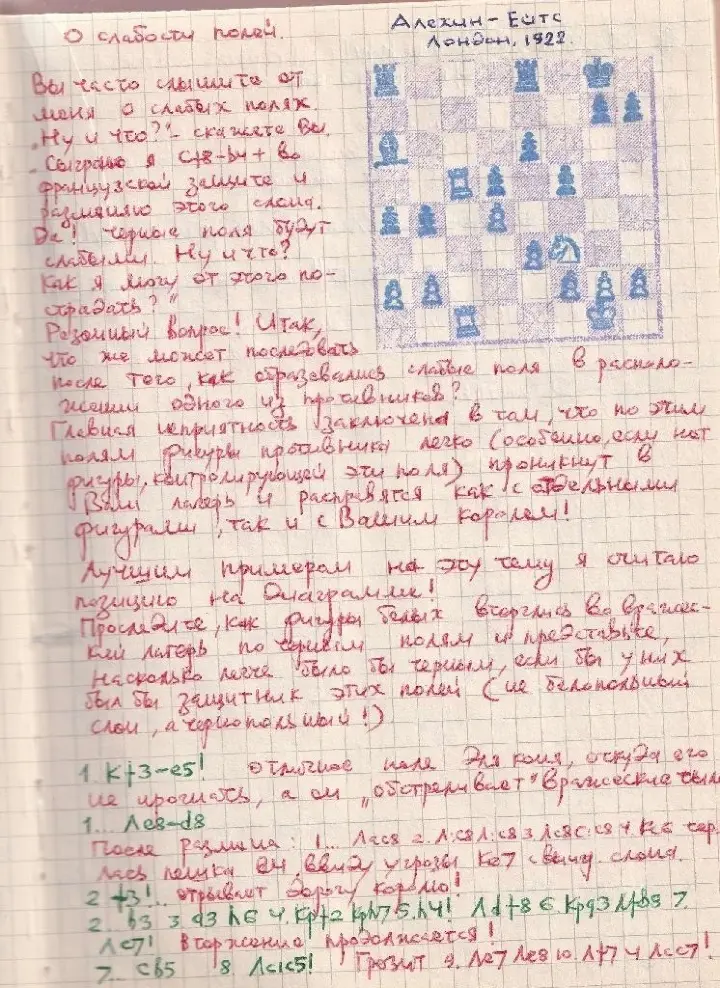 О слабости полей.
Алехин - Ейтс
Лондон, 1922.
Вы часто слышите от
меня о слабых полях.
„Ну и что?" - скажете Вы.
- Сыграю я Cf8-b4+ во
французской защите и
разменяю этого слона.
Да! черные поля будут
слабыми. Ну и что?
Как я могу от этого по-
страдать?"
Резонный вопрос! Итак,
что же может последовать
после того, как образовались слабые поля в располо-
жении одного из противников?
Главная неприятность заключена в том, что по этим
полям фигуры противника легко (особенно, если нет
фигуры, контролирующей эти поля) проникнут в
Ваш лагерь и расправятся как с отдельными
фигурами, так и с Вашим королем!
Лучшим примером на эту тему я считаю
позицию на диаграмме!
Проследите, как фигуры белых вторглись во вражес-
кий лагерь по черным полям и представьте,
насколько легче было бы черным, если бы у них
был бы защитник этих полей (не белопольный
слон, а чернопольный!)
1. Kf3-e5! отличное поле для коня, откуда его
не прогнать, а он „обстреливает" вражеские тылы
1... Лe8-d8
После размена: 1... Лac8 2. Л:c8 Л:c8 3. Л:c8 C:c8 4. Kc6 тер.
лась пешка ввиду угрозы Ke7 с выигр. слона.
2 f3! открывает дорогу королю!
2... b3 3 a3 h6 4. Kpf2 Kph7 5. h4! Лdf8 6. Kpg3 Лfb8 7.
Лc7! вторжение продолжается!
7... Cb5 8 Лc1c5! Грозит 9. Лe7 Лe8 10. Лf7 и Лcc7!